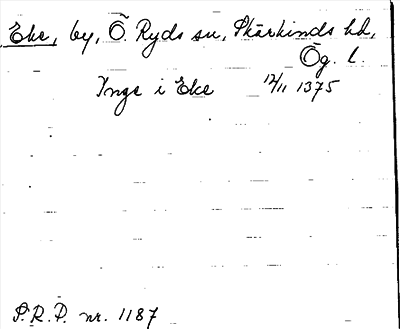 Eke, by, Ö. Ryds sn, Skärkinds hd,
Ög. l.
Inge i Eke 12/11 1375
S.R.P. nr. 1187